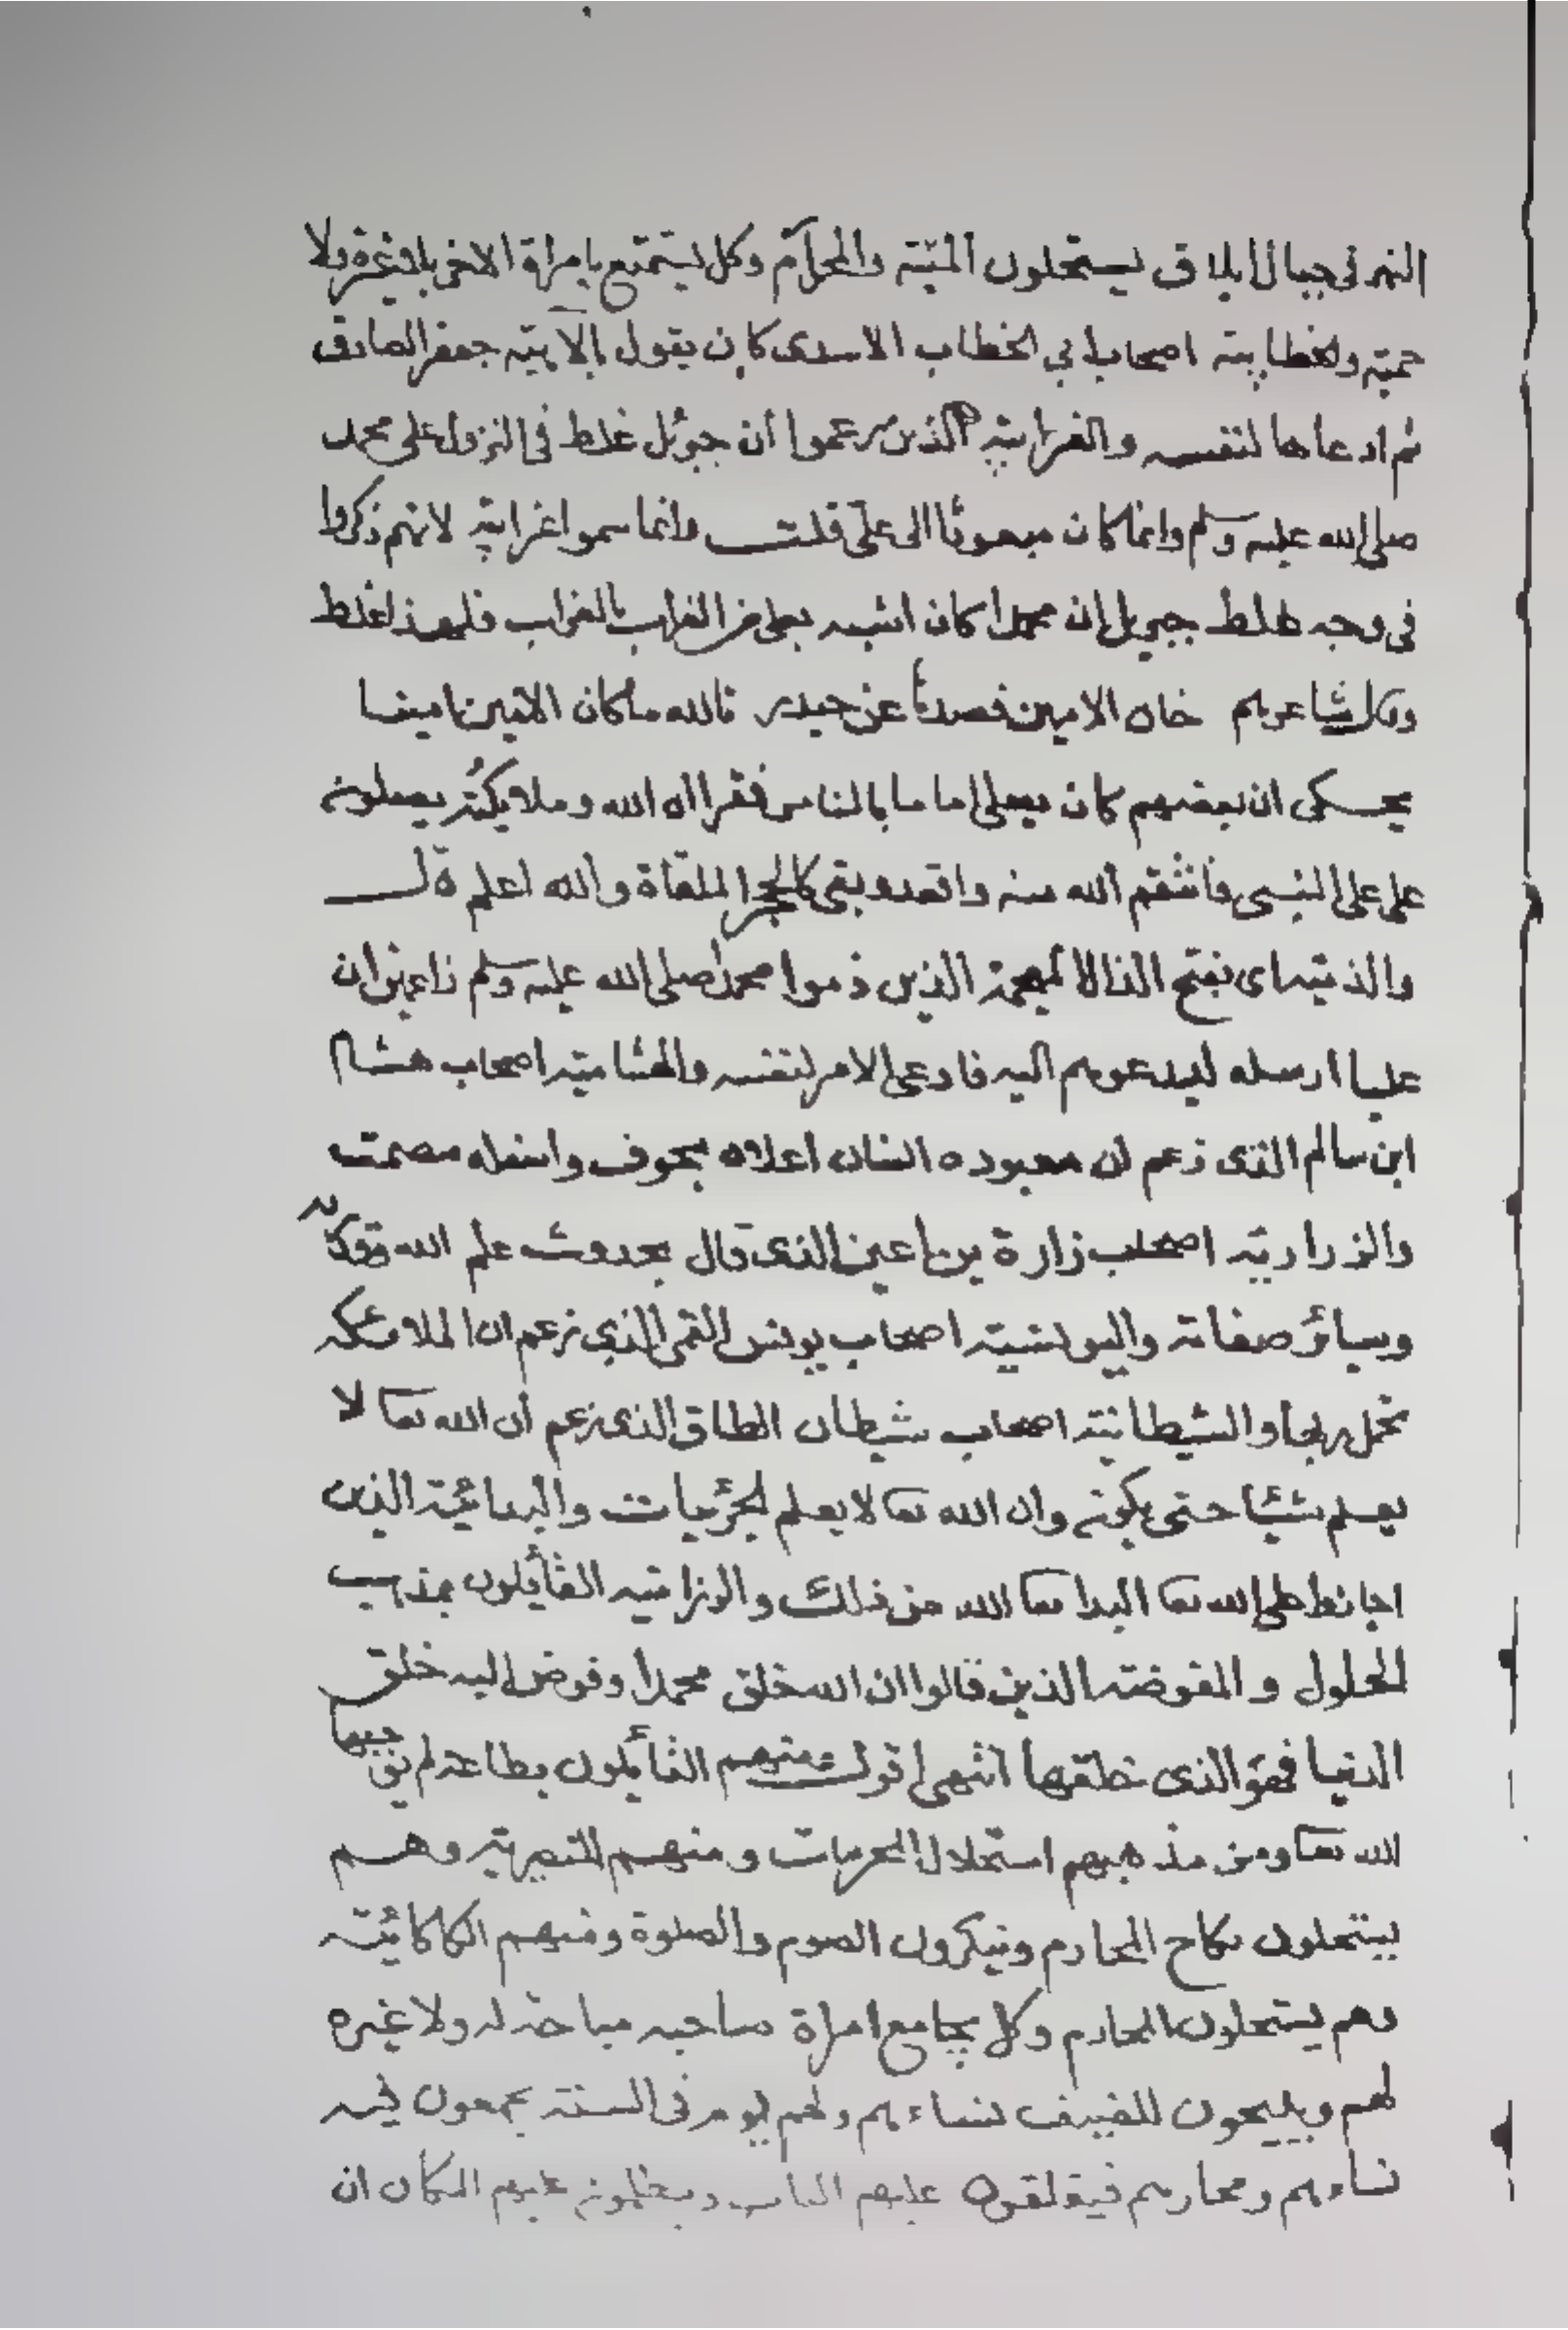 النهر في جبال ايلاق يستحلون الميتة والمحارم وكل يستمتع بامراة الاخر بلا غيرة ولا
حمية والخطابية اصحاب ابي الخطاب الاسدي كان يقول بالاهية جعفر الصادق
ثم ادعاها لنفسه والغرابية الذين زعموا أن جبرئل غلط في النزول على محمد
صلى الله عليه وسلم وانما كان مبعوثا الى علي قلت وانما سموا غرابية لانهم ذكروا
في وجه غلط جبريل ان محمدا كان اشبه بعلي من الغراب بالغراب فلهذا غلط
وقال شاعرهم خان الامين فصدنا عن حيدر تالله ما كان الامين امينا
يحكى ان بعضهم كان يصلي اماما بالناس فقرا ان الله وملايكته يصلون
على علي النبي فانتقم الله منه واقعد وبقي كالحجر الملقاة والله اعلم قال
والذمية اي بفتح الذال المعجمة الذين ذموا محمدا صلى الله عليه وسلم زاعمين ان
عليا ارسله ليدعوهم اليه فادعى الامر لنفسه والهشامية اصحاب هشام
ابن سالم الذي زعم ان معبوده انسان اعلاه مجوف واسفله مصمت
والزرارية اصحاب زارة بن اعين الذي قال بحدوث علم الله وقدرته
وسائر صفاته واليونسية اصحاب يونس القمي الذي زعم ان الملائكة
تحمل ربها والشيطانية اصحاب شيطان الطاق الذي زعم أن الله تعا لا
يعلم شيئا حتى يكونه وان الله تعا لا يعلم الجزئيات والبدائية الذين
اجازوا على الله تعا البدا تعا الله من ذلك والرزامية القائلون بمذهب
الحلول و المفوضة الذين قالوا ان الله خلق محمدا وفوض اليه خلق
الدنيا فهو الذي خلقها انتهى اقول ومنهم القائلون بطاعة لم يوجبها
الله تعا ومن مذهبهم استحلال المحرمات ومنهم النصيرية وهم
يستحلون نكاح المحارم وينكرون الصوم والصلوة ومنهم الكاكائية
وهم يستحلون المحارم وكل يجامع امراة صاحبه مباحة له ولا غيرة
لهم ويبيحون للضيف نساءهم ولهم يوم في السنة يجمعون فيه
نساءهم ومحارمهم فيغلقون عليهم الباب ويظلمون عليهم المكان ان